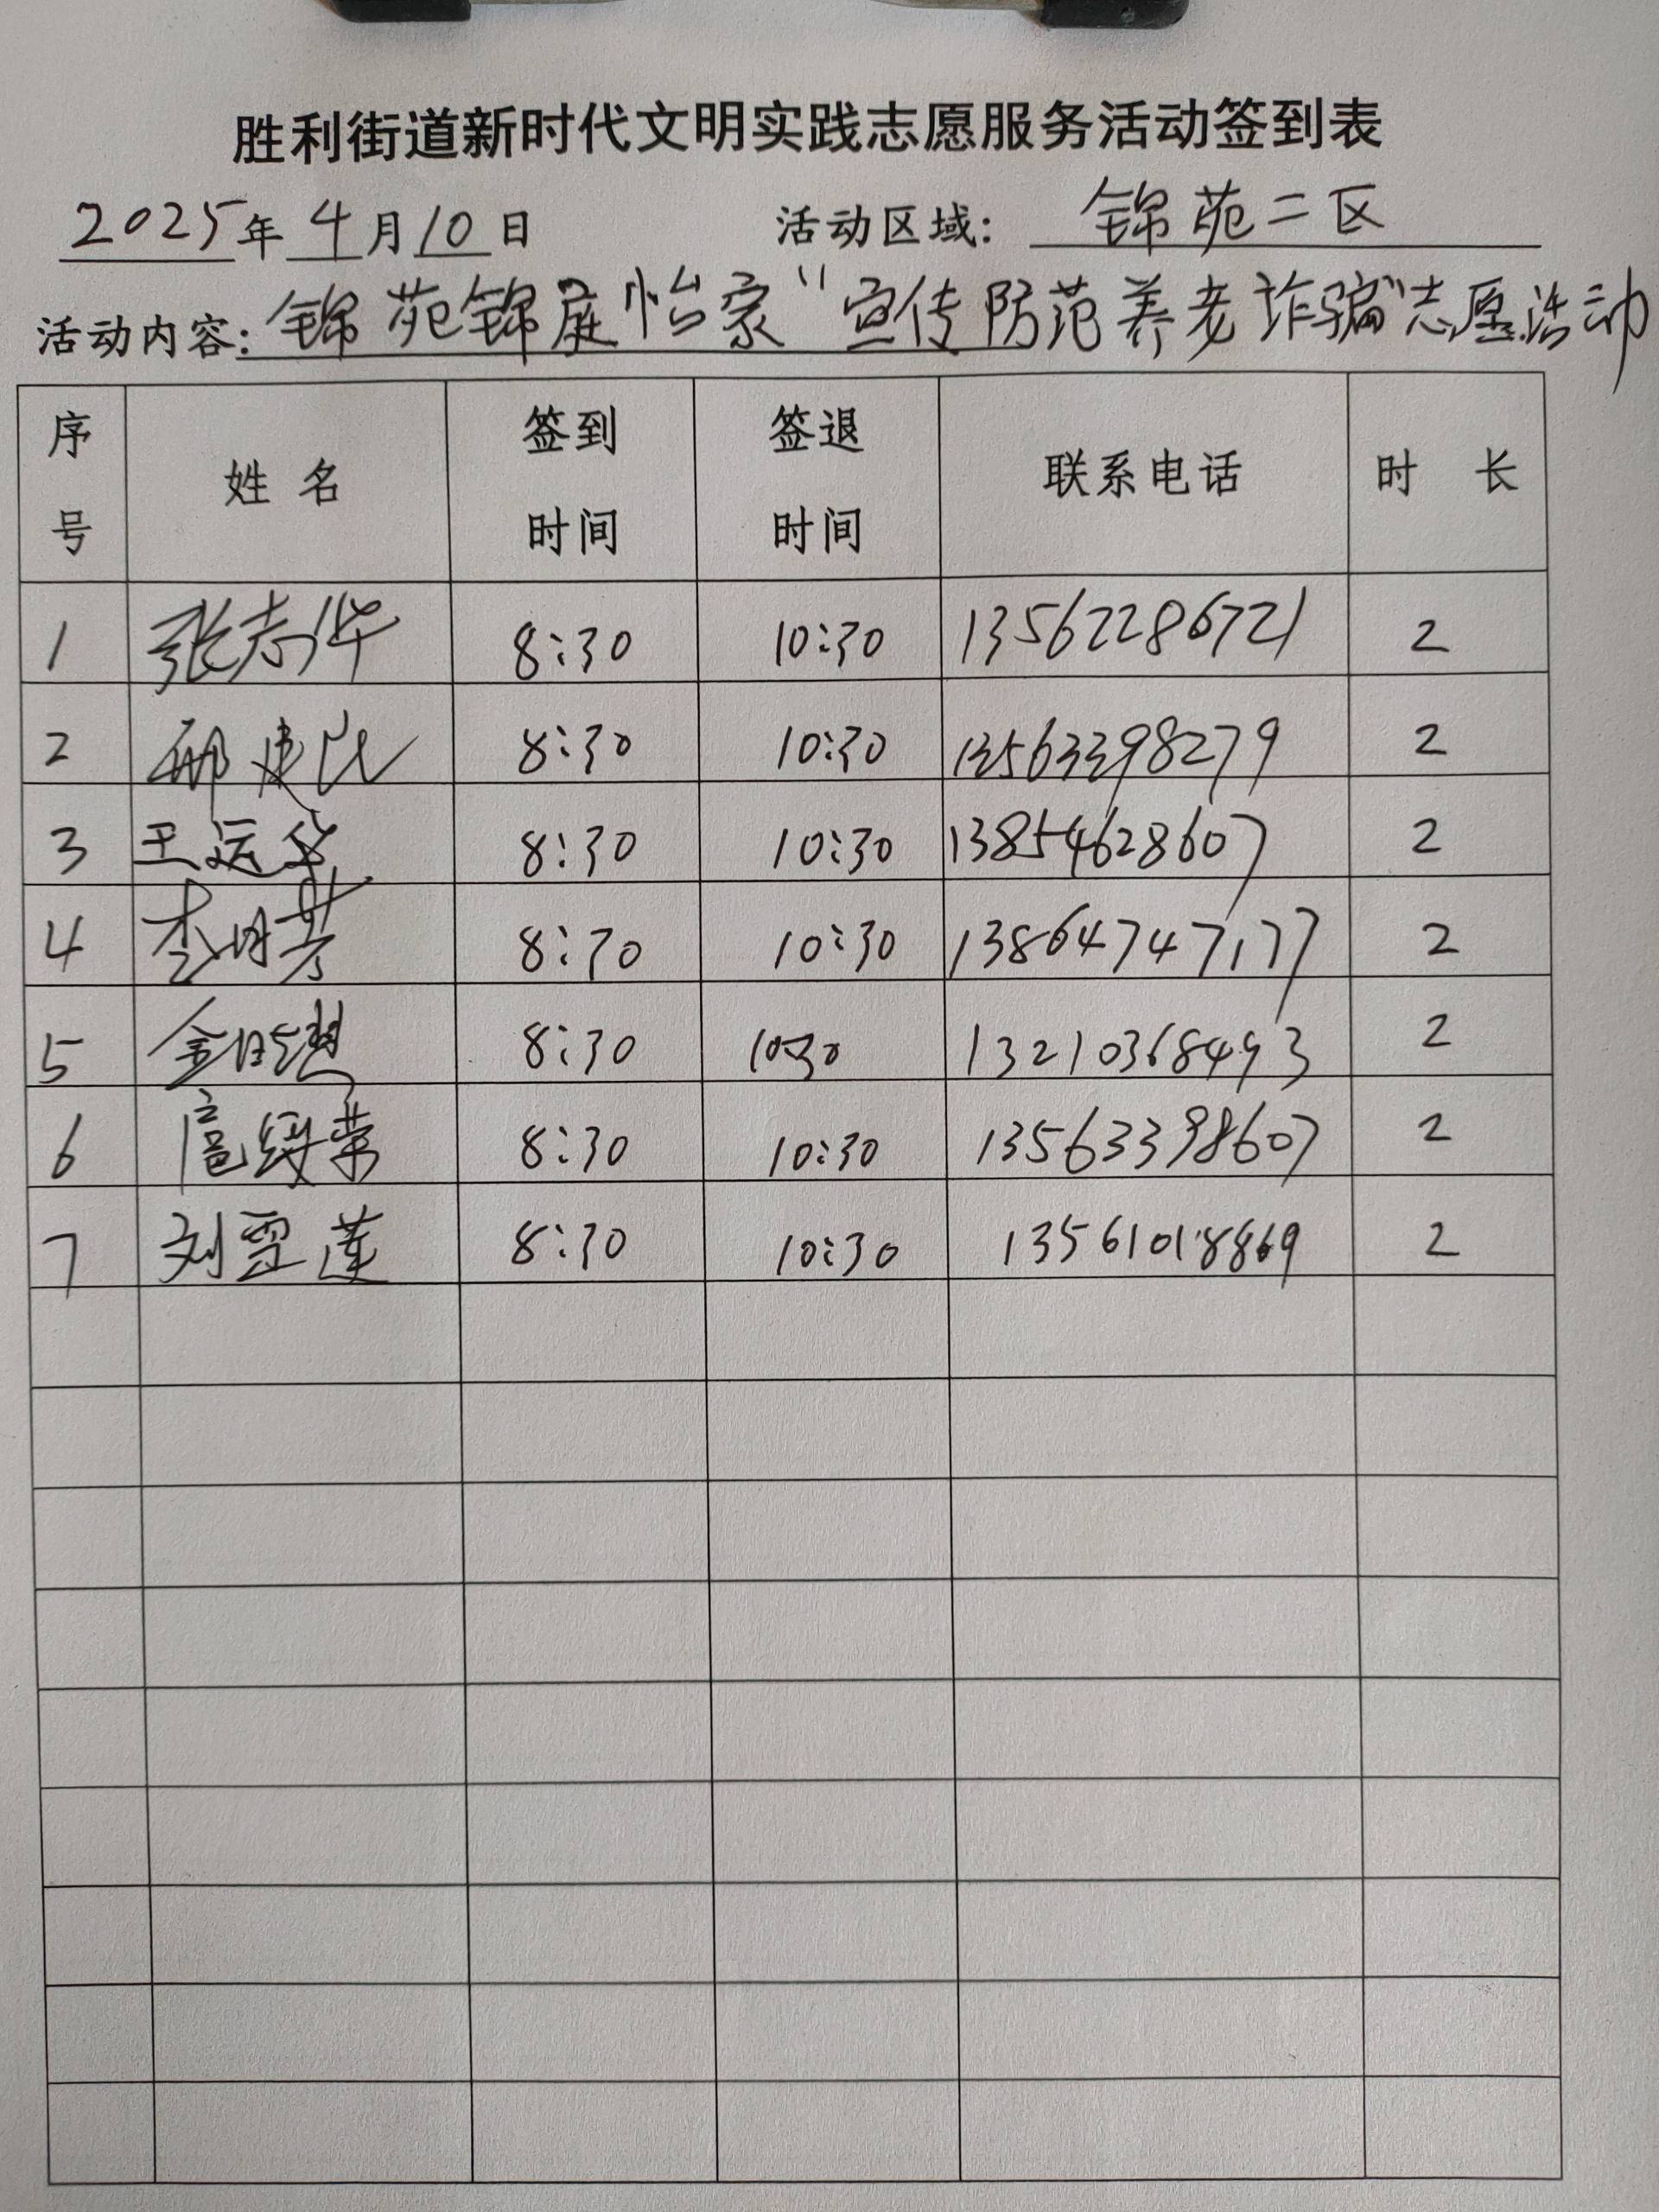 胜利街道新时代文明实践志愿服务活动签到表
2025年4月10日 活动区域: 锦苑二区
活动内容: 锦苑锦庭怡家“宣传防范养老诈骗”志愿活动
序号 姓名 签到时间 签退时间 联系电话 时长
1 张志华 8:30 10:30 13562286721 2
2 邢建民 8:30 10:30 13563398279 2
3 王运华 8:30 10:30 13854628607 2
4 李月芳 8:30 10:30 13864747177 2
5 8:30 10:30 13210368493 2
6 扈绥荣 8:30 10:30 13563398607 2
7 刘雪莲 8:30 10:30 13561018869 2